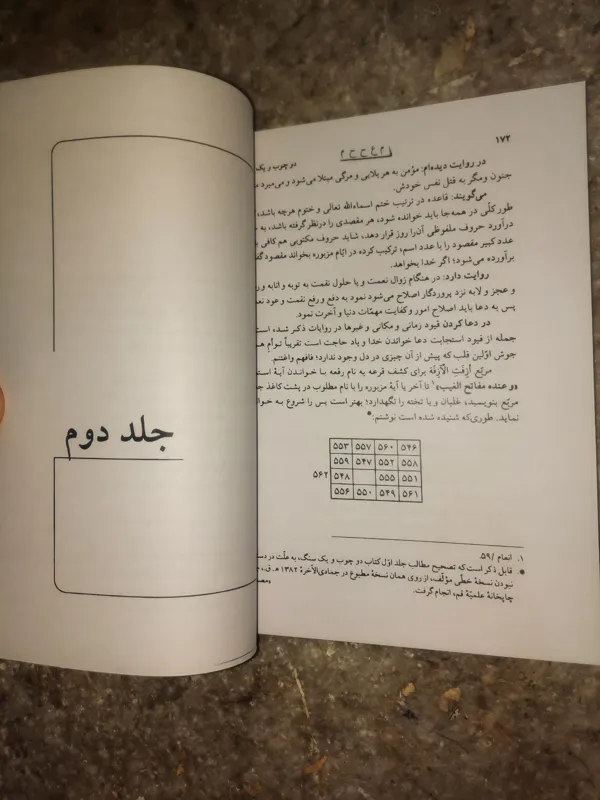 ۱۷۲
دو چوب و یک
در روایت دیده‌ام: مؤمن به هر بلایی و مرگی مبتلا می‌شود و می‌میرد
جنون ومگر به قتل نفس خودش.
می‌گویند: قاعده در ترتیب ختم اسماءالله تعالی و ختوم هرچه باشد،
طور کلّی در همه‌جا باید خوانده شود، هر مقصدی را درنظر گرفته باشد، به
درآورد حروف ملفوظی آن‌را روز قرار دهد، شاید حروف مکتوبی هم کافی
عدد کبیر مقصود را با عدد اسم، ترکیب کرده در ایّام مزبوره بخواند مقصود
برآورده می‌شود؛ اگر خدا بخواهد.
روایت دارد: در هنگام زوال نعمت و یا حلول نقمت به توبه و انابه و
و عجز و لابه نزد پروردگار اصلاح می‌شود نمود به دفع و رفع نقمت و عود
پس به دعا باید اصلاح امور وکفایت مهمّات دنیا و آخرت نمود.
در دعا کردن قیود زمانی و مکانی و غیرها در روایات ذکر شده است
جمله از قیود استجابت دعا خواندن خدا و یاد حاجت است تقریباً توأم
جوش اوّلین قلب که پیش از آن چیزی در دل وجود ندارد؛ فافهم واغتنم.
مربّع أزِفَتِ الْآزِفَة برای کشف قرعه به نام رقعه با خواندن آیهٔ
«و عنده مفاتح الغیب»۱ تا آخر یا آیهٔ مزبوره را با نام مطلوب در پشت کاغذ
مربّع بنویسید، غلیان و یا تخته را نگهدارد؛ بهتر است بس را شروع به
نماید. طوری‌که شنیده شده است نوشتم:●
۵۴۶ ۵۶۰ ۵۵۷ ۵۵۳
۵۵۸ ۵۵۲ ۵۴۷ ۵۵۹
۵۵۱ ۵۵۵ ۵۴۸ ۵۶۲
۵۶۱ ۵۴۹ ۵۵۰ ۵۵۶
۱. انعام / ۵۹.
● قابل ذکر است که تصحیح مطالب جلد اوّل کتاب دو چوب و یک سنگ، به علّت در
نبودن نسخهٔ خطّی مؤلّف، از روی همان نسخهٔ مطبوع در جمادی‌الآخرهٔ ۱۳۸۲ ه‍.ق.،
چاپخانهٔ علمیّهٔ قم، انجام گرفت.
جلد دوم